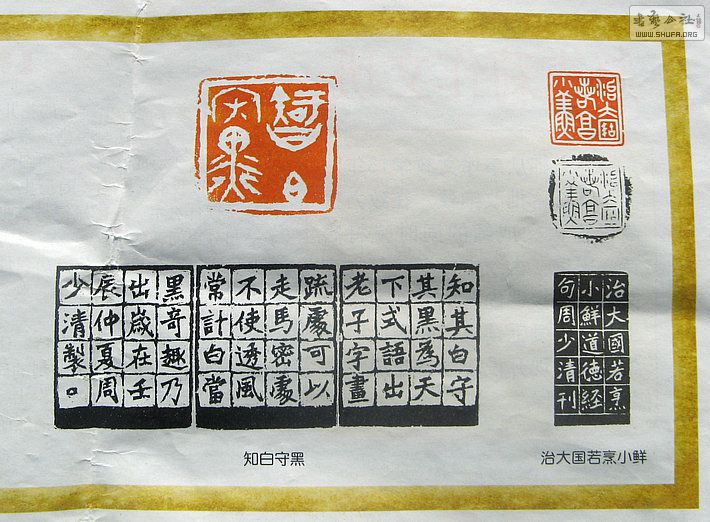 書藝公社
WWW.SHUFA.ORG
知白
守黑
治大國
若烹
小鮮
治大國
若烹
小鮮
知其白守
其黑為天
下式語出
老子字畫
疏處可以
走馬密處
不使透風
常計白當
黑奇趣乃
出歲在壬
辰仲夏周
少清製。
治大國若烹
小鮮道德經
句周少清刊
知白守黑
治大国若烹小鲜